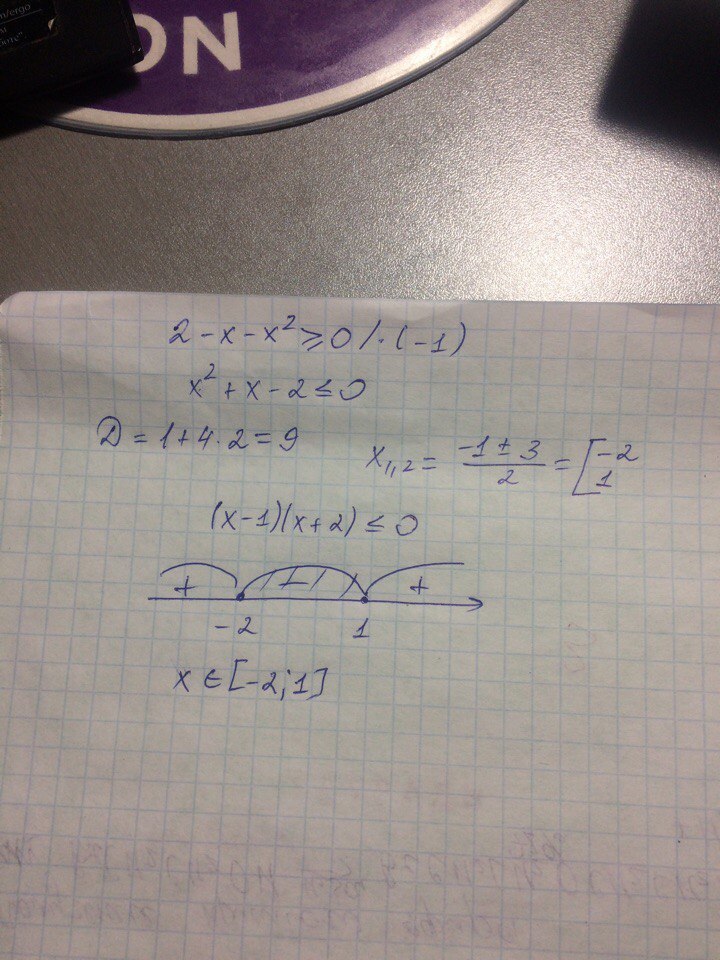 ON
2 - x - x² ⩾ 0 / · (-1)
x² + x - 2 ≤ 0
D = 1 + 4 · 2 = 9
x₁,₂ = \frac{-1 ± 3}{2} = [ -2
1
(x - 1)(x + 2) ≤ 0
+ - +
-2 1
x ∈ [-2; 1]